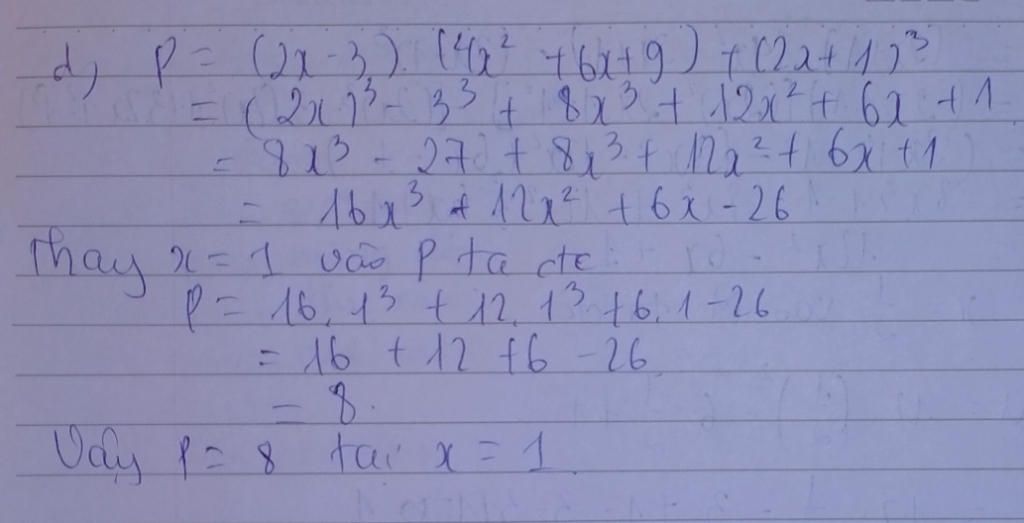 d, P = (2x-3).(4x² +6x+9) + (2x+1)³
= (2x)³ - 3³ + 8x³ + 12x² + 6x + 1
= 8x³ - 27 + 8x³ + 12x² + 6x + 1
= 16x³ + 12x² + 6x - 26
Thay x = 1 vào P ta đc
P = 16.1³ + 12.1³ + 6.1 - 26
= 16 + 12 + 6 - 26
= 8.
Vậy P = 8 tại x = 1.